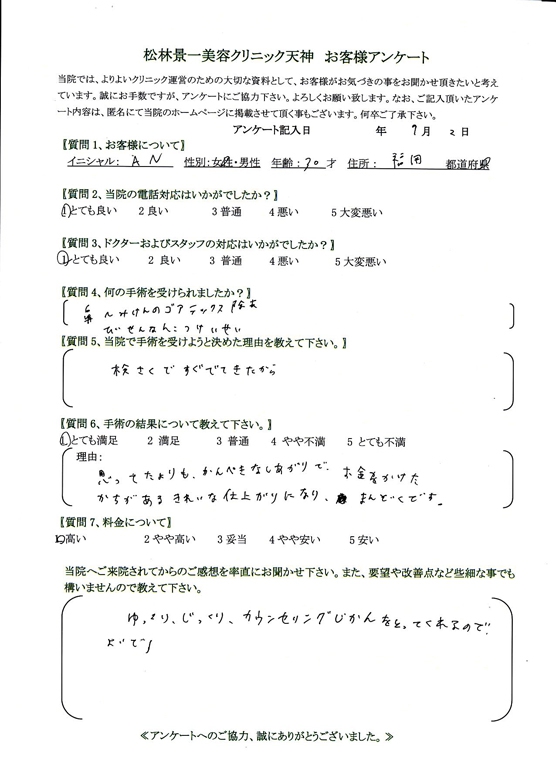 松林景一美容クリニック天神　お客様アンケート
当院では、よりよいクリニック運営のための大切な資料として、お客様がお気づきの事をお聞かせ頂きたいと考え
ています。誠にお手数ですが、アンケートにご協力下さい。よろしくお願い致します。なお、ご記入頂いたアンケ
ート内容は、匿名にて当院のホームページに掲載させて頂く事もございます。何卒ご了承下さい。
アンケート記入日　　　年　9月　2日
〖質問1、お客様について〗
イニシャル：AN　性別：女性・男性　年齢：30才　住所：福岡　都道府県
〖質問2、当院の電話対応はいかがでしたか？〗
1とても良い　2 良い　3 普通　4 悪い　5 大変悪い
〖質問3、ドクターおよびスタッフの対応はいかがでしたか？〗
1とても良い　2 良い　3 普通　4 悪い　5 大変悪い
〖質問4、何の手術を受けられましたか？〗
みけんのゴアテックス除去
〖質問5、当院で手術を受けようと決めた理由を教えて下さい。〗
検さくですぐでてきたから
〖質問6、手術の結果について教えて下さい。〗
1とても満足　2 満足　3 普通　4 やや不満　5 とても不満
理由：
思ってたよりも、かんぺきなしあがりで、お金をかけた
かちがあるきれいな仕上がりになり、まんぞくです。
〖質問7、料金について〗
1高い　2 やや高い　3 妥当　4 やや安い　5 安い
当院へご来院されてからのご感想を率直にお聞かせ下さい。また、要望や改善点など些細な事でも
構いませんので教えて下さい。
ゆっくり、じっくり、カウンセリングじかんをとってくれるので
よいです
≪アンケートへのご協力、誠にありがとうございました。≫